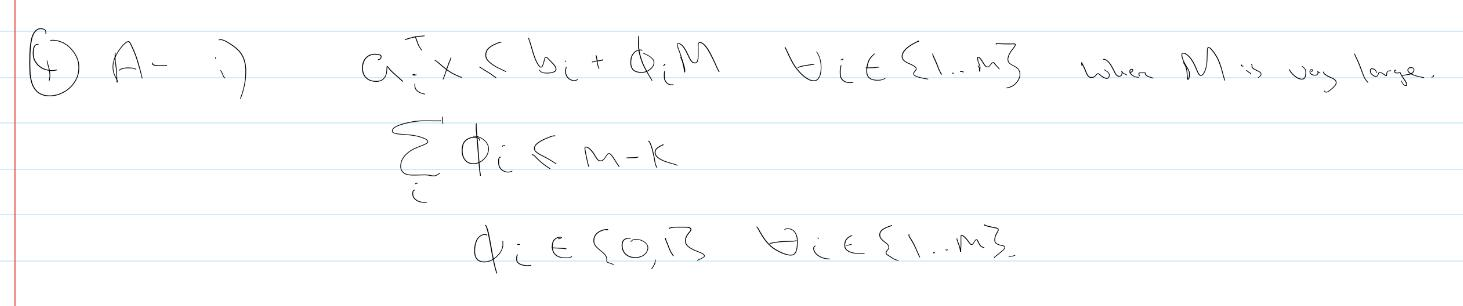 ④ A- i) aᵢᵀx ≤ bᵢ + ϕᵢM ∀i ∈ {1..m} when M is very large.
∑ᵢ ϕᵢ ≤ m-k
ϕᵢ ∈ {0,1} ∀i ∈ {1..m}.